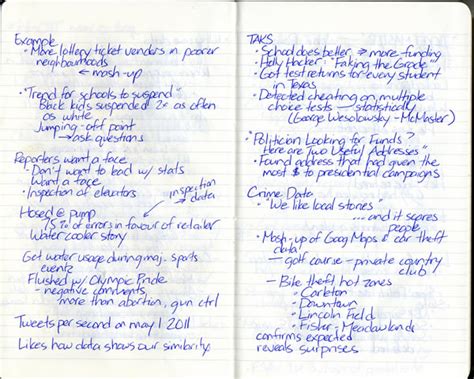 Example
• More lottery ticket vendors in poorer
neighbourhoods
↙ mash-up
• "Trend for schools to suspend"
Black kids suspended 2x as often
as white
Jumping-off point
↳ ask questions
Reporters want a face
• Don't want to lead w/ stats
Want a face
• Inspection of elevators
inspection
data
Hosed @ pump
75% of errors in favour of retailer
Water cooler story
Get water usage during maj. sports
events
Flushed w/ Olympic Pride
- negative comments,
more than abortion, gun ctrl
Tweets per second on may 1 2011
Likes how data shows our similarity
TAKS
• School does better → more funding
• Holly Hacker: "Faking the Grade"
• Got test returns for every student
in Texas
• Detected cheating on multiple
choice tests — statistically
(George Wesolowsky - McMaster)
• "Politician Looking for Funds?
Here are Two Useful Addresses"
• Found address that had given the
most $ to presidential campaigns
Crime Data
• "We like local stories"
...and it scares
people
• Mash-up of Goog Maps & car theft
data!
— golf course - private country
club
— Bike theft hot zones
• Carleton
• Downtown
• Lincoln Field
• Fisher - Meadowlands
confirms expected
reveals surprises